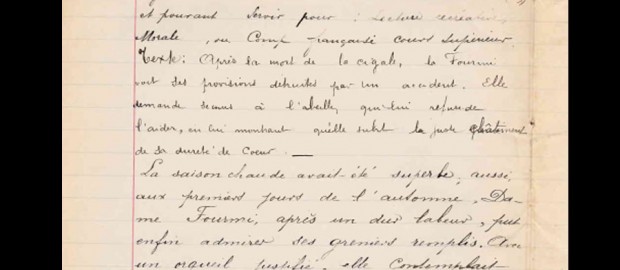 et pouvant servir pour : Lecture récréative,
Morale, ou Comp. française cours supérieur.
Texte : Après la mort de la cigale, la Fourmi
voit ses provisions détruites par un accident. Elle
demande secours à l'abeille, qui lui refuse de
l'aider, en lui montrant qu'elle subit la juste châtiment
de sa dureté de cœur. —
La saison chaude avait été superbe, aussi,
aux premiers jours de l'automne, Da-
me Fourmi, après un dur labeur, put
enfin admirer ses greniers remplis. Avec
un orgueil justifié, elle contemplait